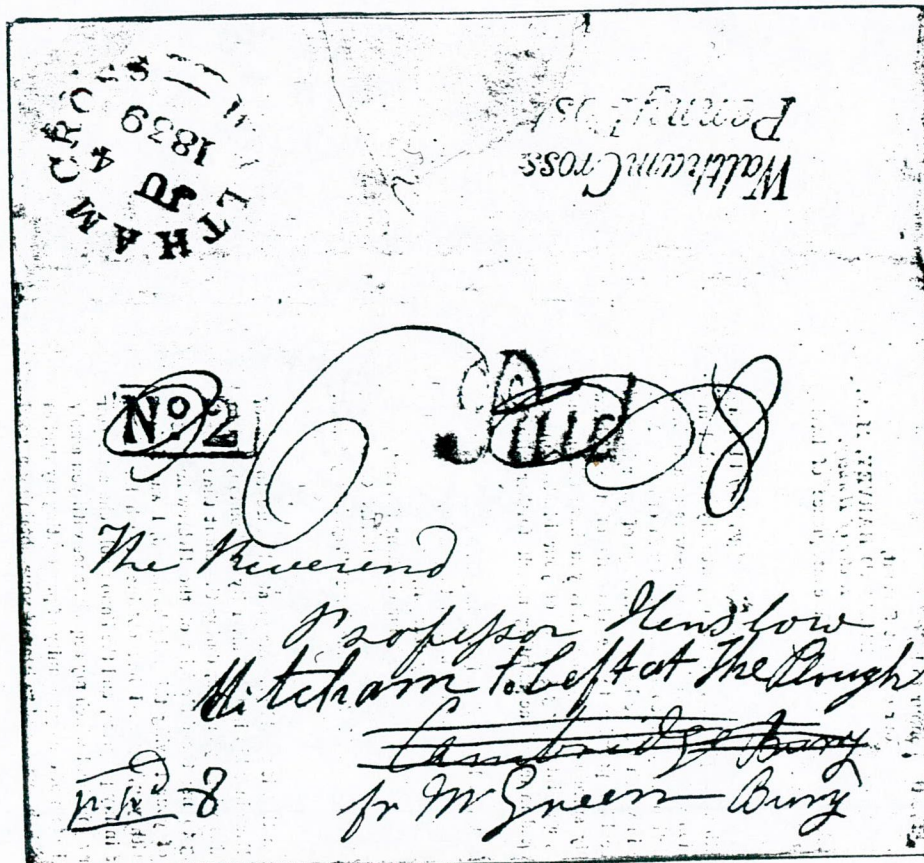 WALTHAM CROSS
JU 4
1839
Waltham Cross
Penny Post
No. 2
Paid
8
The Reverend
Professor Henslow
Hitcham to be left at The Plough
Cambridge Bury
fr Mr Green Bury
pd 8